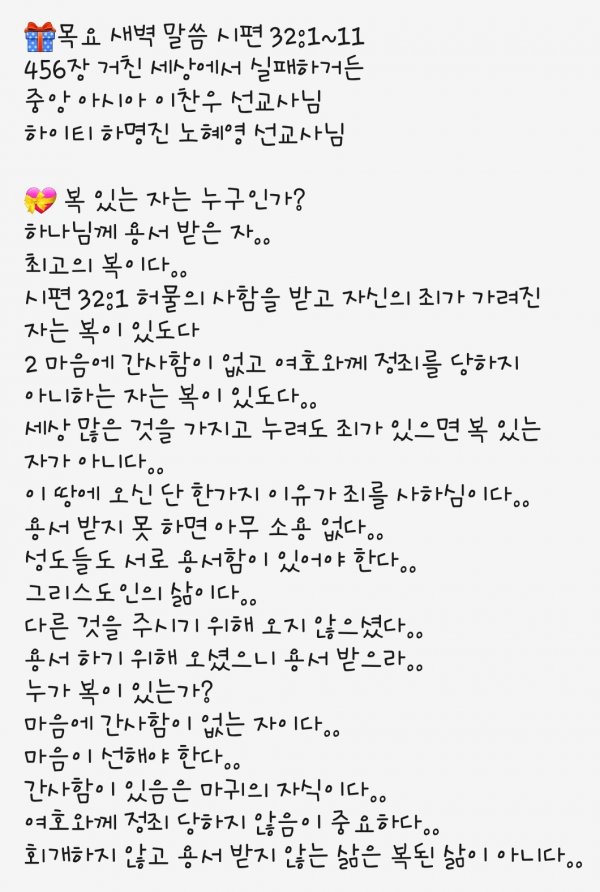 🎁목요 새벽 말씀 시편 32:1~11
456장 거친 세상에서 실패하거든
중앙 아시아 이찬우 선교사님
하이티 하명진 노혜영 선교사님
💝 복 있는 자는 누구인가?
하나님께 용서 받은 자。。
최고의 복이다。。
시편 32:1 허물의 사함을 받고 자신의 죄가 가려진
자는 복이 있도다
2 마음에 간사함이 없고 여호와께 정죄를 당하지
아니하는 자는 복이 있도다。。
세상 많은 것을 가지고 누려도 죄가 있으면 복 있는
자가 아니다。。
이 땅에 오신 단 한가지 이유가 죄를 사하심이다。。
용서 받지 못 하면 아무 소용 없다。。
성도들도 서로 용서함이 있어야 한다。。
그리스도인의 삶이다。。
다른 것을 주시기 위해 오지 않으셨다。。
용서 하기 위해 오셨으니 용서 받으라。。
누가 복이 있는가?
마음에 간사함이 없는 자이다。。
마음이 선해야 한다。。
간사함이 있음은 마귀의 자식이다。。
여호와께 정죄 당하지 않음이 중요하다。。
회개하지 않고 용서 받지 않는 삶은 복된 삶이 아니다。。